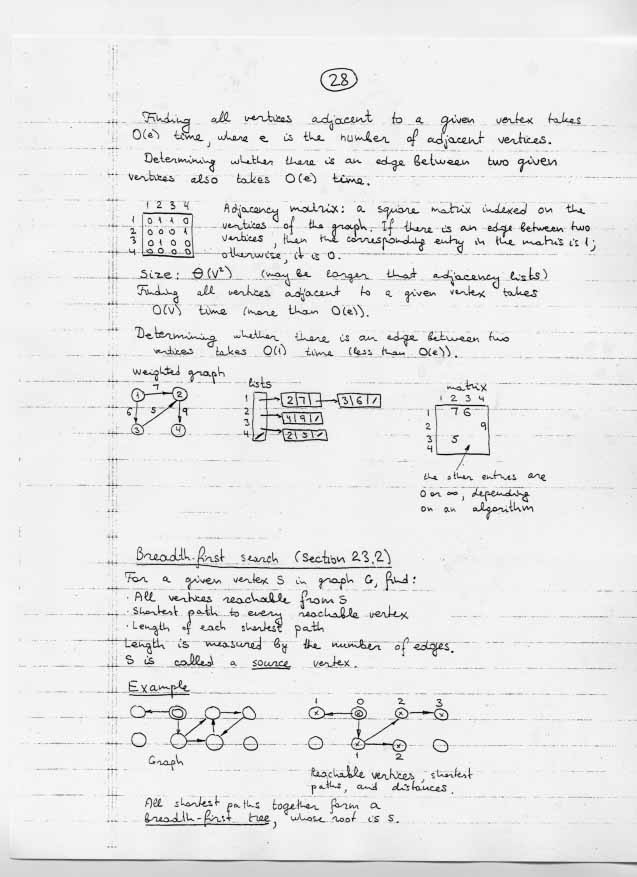 28
Finding all vertices adjacent to a given vertex takes
O(e) time, where e is the number of adjacent vertices.
Determining whether there is an edge between two given
vertices also takes O(e) time.
1 2 3 4
1 0 1 1 0
2 0 0 0 1
3 0 1 0 0
4 0 0 0 0
Adjacency matrix: a square matrix indexed on the
vertices of the graph. If there is an edge between two
vertices, then the corresponding entry in the matrix is 1;
otherwise, it is 0.
Size: Θ(V²) (may be larger that adjacency lists)
Finding all vertices adjacent to a given vertex takes
O(V) time (more than O(e)).
Determining whether there is an edge between two
vertices takes O(1) time (less than O(e)).
weighted graph
1 7 2
6 5 9
3 4
lists
1 2 7 3 6 /
2 4 9 /
3 2 5 /
4
matrix
1 2 3 4
1 7 6
2 9
3 5
4
the other entries are
0 or ∞, depending
on an algorithm
Breadth-first search (Section 23.2)
For a given vertex S in graph G, find:
· All vertices reachable from S
· Shortest path to every reachable vertex
· Length of each shortest path
Length is measured by the number of edges.
S is called a source vertex.
Example
Graph
1 0 2 3
1 2
Reachable vertices, shortest
paths, and distances.
All shortest paths together form a
breadth-first tree, whose root is S.